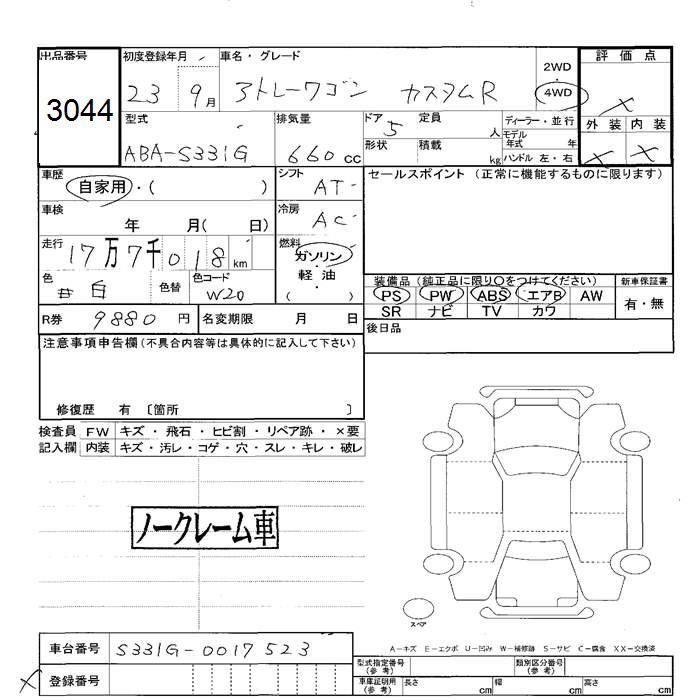 出品番号 初度登録年月 車名・グレード 評価点
3044 23 9月 アトレーワゴン カスタムR 2WD・4WD ×
型式 排気量 ドア 定員 ディーラー・並行 外装 内装
ABA-S331G 660cc 5 人 モデル年式 年 × ×
形状 積載 kg ハンドル 左・右
車歴 シフト セールスポイント (正常に機能するものに限ります)
自家用・( ) AT
車検 冷房
年 月( 日) AC
走行 燃料
17万7千018km ガソリン・軽油
色 色替 色コード ( ) 装備品 (純正品に限り〇をつけてください) 新車保証書
白 W20 PS PW ABS エアB AW 有・無
SR ナビ TV カワ
R券 9880円 名変期限 月 日 後日品
注意事項申告欄(不具合内容等は具体的に記入して下さい)
修復歴 有 〔箇所 〕
検査員 FW キズ・飛石・ヒビ割・リペア跡・×要
記入欄 内装 キズ・汚レ・コゲ・穴・スレ・キレ・破レ
ノークレーム車
スペア
車台番号 S331G-0017523 A-キズ E-エクボ U-凹み W-補修跡 S-サビ C-腐食 XX-交換済
型式指定番号(参考) 類別区分番号(参考)
× 登録番号 車庫証明用(参考) 長さ cm 幅 cm 高さ cm